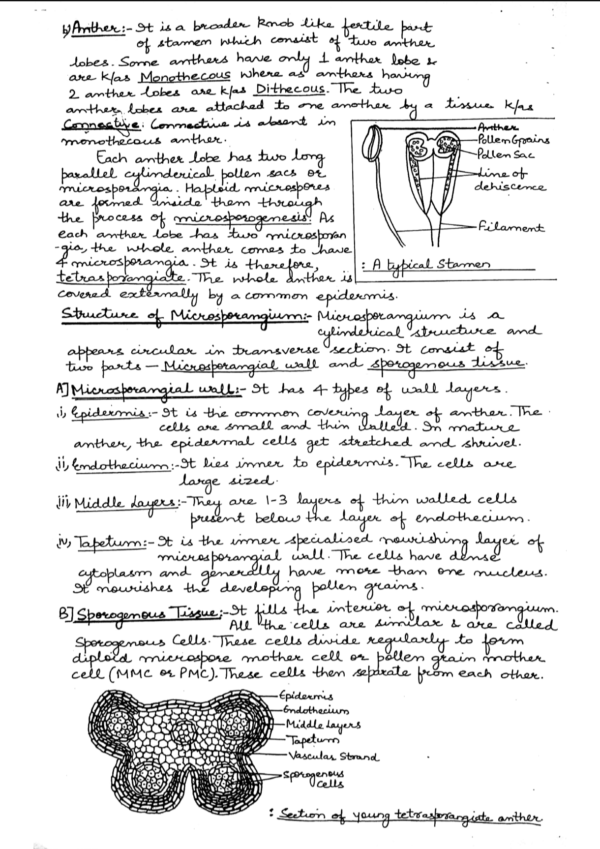 b) Anther:- It is a broader knob like fertile part
of stamen which consist of two anther
lobes. Some anthers have only 1 anther lobe &
are k/as Monothecous where as anthers having
2 anther lobes are k/as Dithecous. The two
anther lobes are attached to one another by a tissue k/as
Connective. Connective is absent in
monothecous anther.
Each anther lobe has two long
parallel cylinderical pollen sacs or
microsporangia. Haploid microspores
are formed inside them through
the process of microsporogenesis. As
each anther lobe has two microsporan
-gia, the whole anther comes to have
4 microsporangia. It is therefore,
tetrasporangiate. The whole anther is
covered externally by a common epidermis.
Anther
Pollen Grains
Pollen Sac
Line of
dehiscence
Filament
: A typical Stamen
Structure of Microsporangium:- Microsporangium is a
cylinderical structure and
appears circular in transverse section. It consist of
two parts — Microsporangial wall and sporogenous tissue.
A] Microsporangial wall:- It has 4 types of wall layers.
i) Epidermis:- It is the common covering layer of anther. The
cells are small and thin walled. In mature
anther, the epidermal cells get stretched and shrivel.
ii) Endothecium:- It lies inner to epidermis. The cells are
large sized.
iii) Middle Layers:- They are 1-3 layers of thin walled cells
present below the layer of endothecium.
iv) Tapetum:- It is the inner specialised nourishing layer of
microsporangial wall. The cells have dense
cytoplasm and generally have more than one nucleus.
It nourishes the developing pollen grains.
B] Sporogenous Tissue:- It fills the interior of microsporangium.
All the cells are similar & are called
Sporogenous Cells. These cells divide regularly to form
diploid microspore mother cell or pollen grain mother
cell (MMC or PMC). These cells then separate from each other.
Epidermis
Endothecium
Middle Layers
Tapetum
Vascular Strand
Sporogenous
Cells
: Section of young tetrasporangiate anther